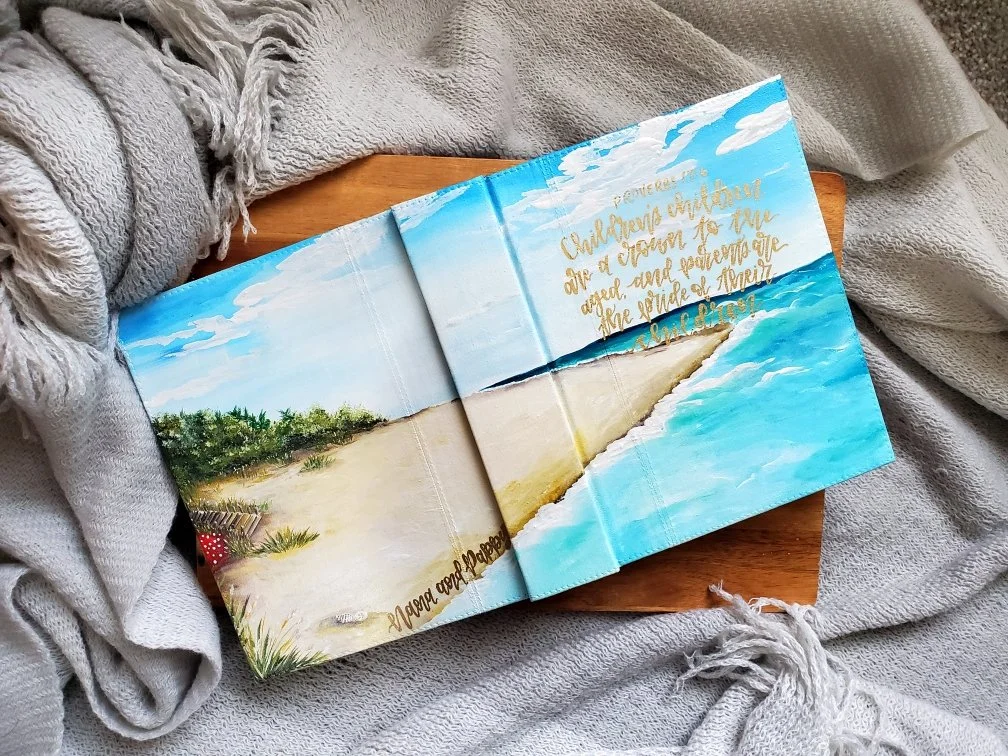 PROVERBS 17:6
Children's children
are a crown to the
aged, and parents are
the pride of their
children
Nana and Pappy